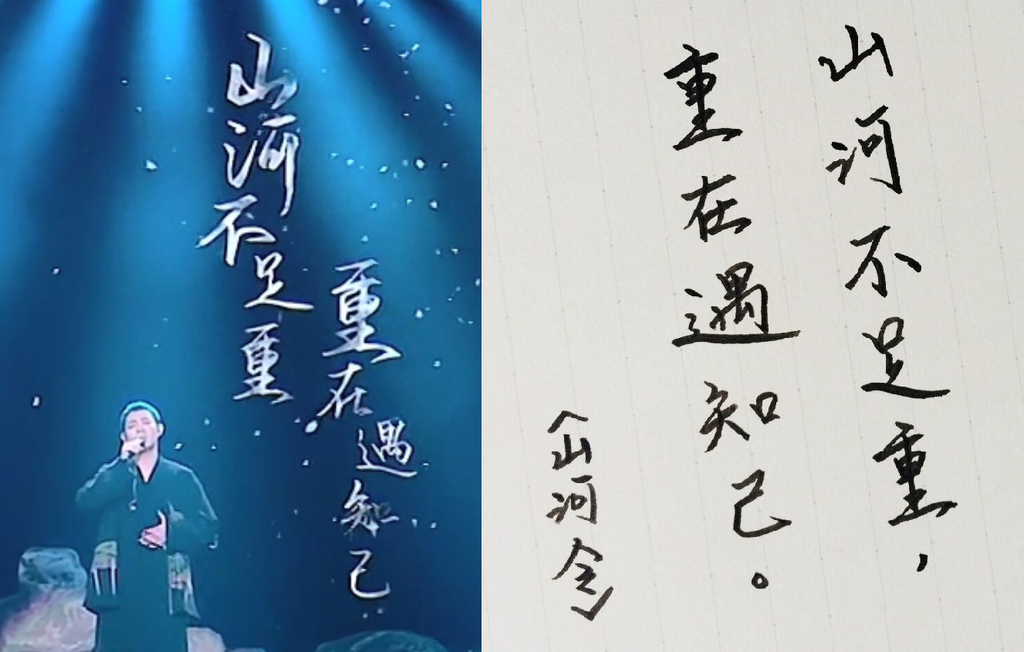 山河不足重
重在遇知己
山河不足重，
重在遇知己。
《山河令》